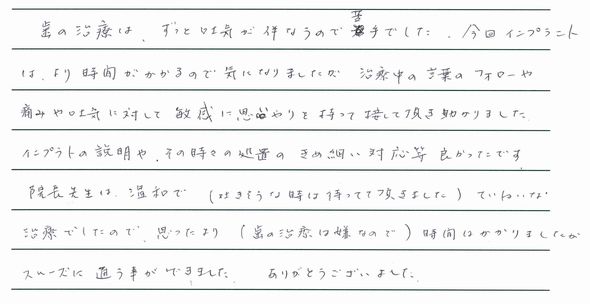 歯の治療は、ずっと吐気が伴なうので苦手でした。今回インプラント
は、より時間がかかるので気になりましたが 治療中の言葉のフォローや
痛みや吐気に対して 敏感に思いやりを持って接して頂き助かりました。
インプラトの説明や、その時々の処置のきめ細い対応等 良かったです。
院長先生は、温和で (吐きそうな時は待ってて頂きました) ていねいな
治療でしたので、思ったより (歯の治療は嫌なので) 時間はかかりましたが
スムーズに 通う事ができました。 ありがとうございました。